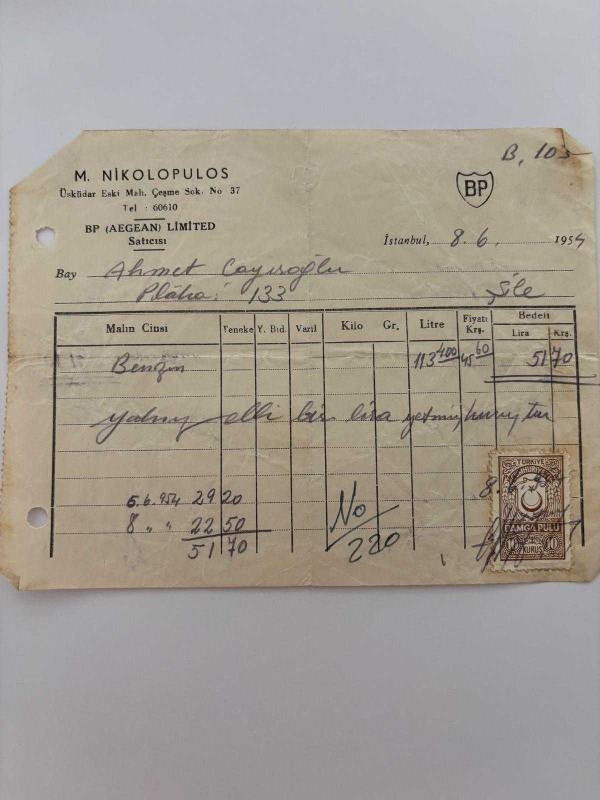 B. 103
M. NİKOLOPULOS
Üsküdar Eski Mah. Çeşme Sok. No 37
Tel : 60610
BP (AEGEAN) LIMITED
Satıcısı
BP
İstanbul, 8.6. 1954
Bay Ahmet Çayıroğlu
Plâka: 133 Şile
Malın Cinsi Teneke Y. Bid. Varil Kilo Gr. Litre Fiyatı Krş. Bedeli Lira Krş.
Benzin 113 400 45 60 51 70
yalnız elli bir lira yetmiş kuruştur
5.6.954 29 20
8 " " 22 50
51 70
No
220
8.
TÜRKİYE
CUMHURİYETİ
DAMGA PULU
10 KURUŞ 10